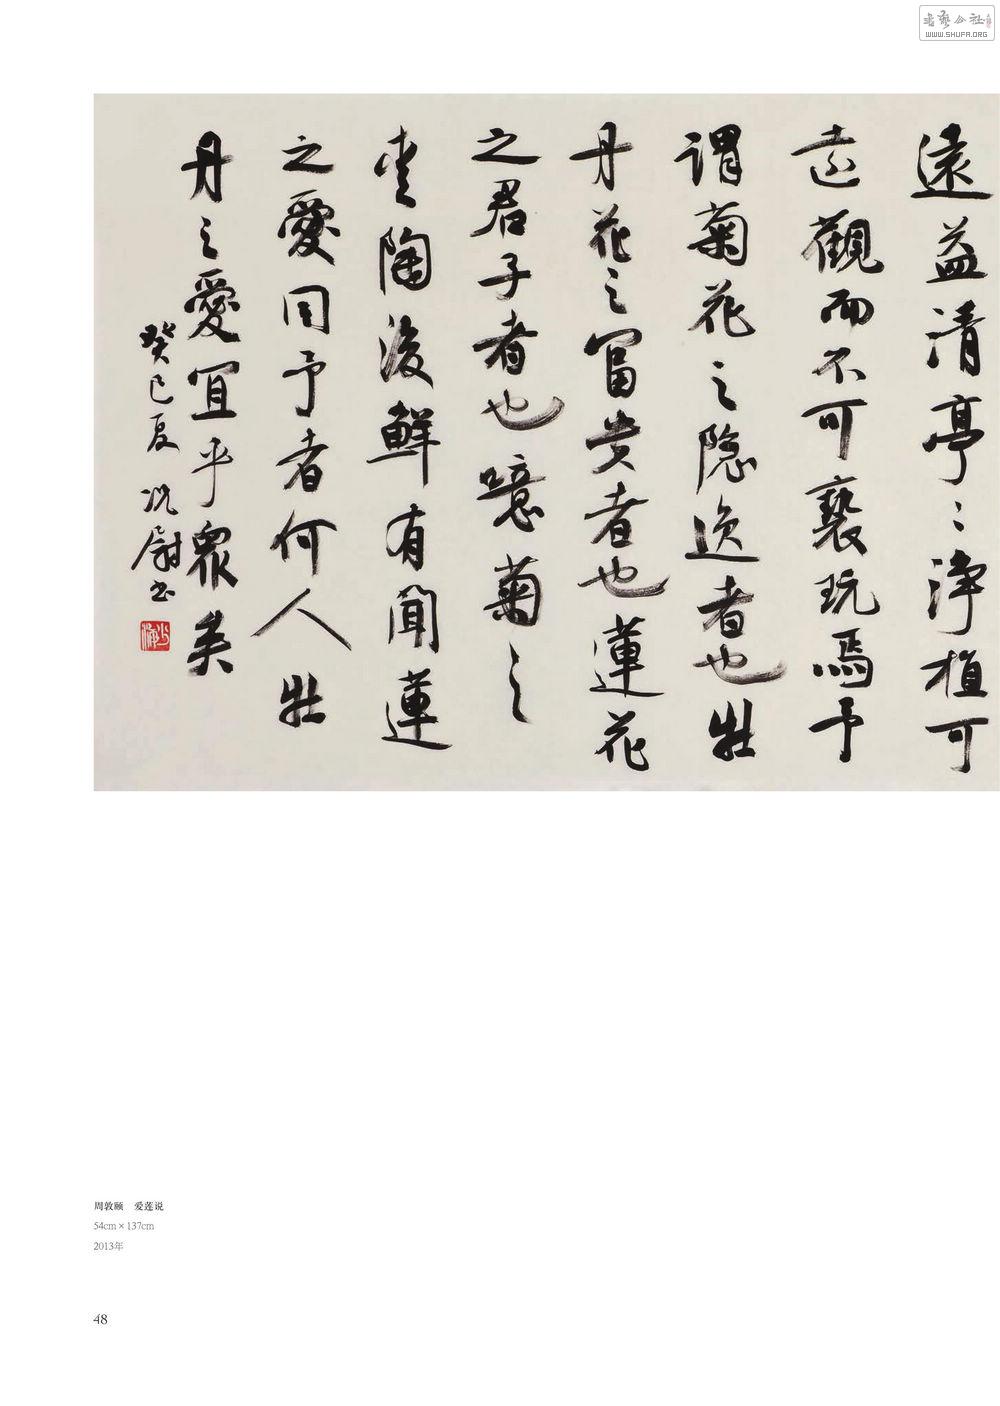 书艺公社
WWW.SHUFA.ORG
遠益清亭〻淨植可
遠觀而不可褻玩焉予
谓菊花之隐逸者也牡
丹花之富贵者也蓮花
之君子者也噫菊之
爱陶後鮮有聞蓮
之愛同予者何人牡
丹之愛宜乎衆矣
癸巳夏 尉书
周敦颐 爱莲说
54cm × 137cm
2013年
48